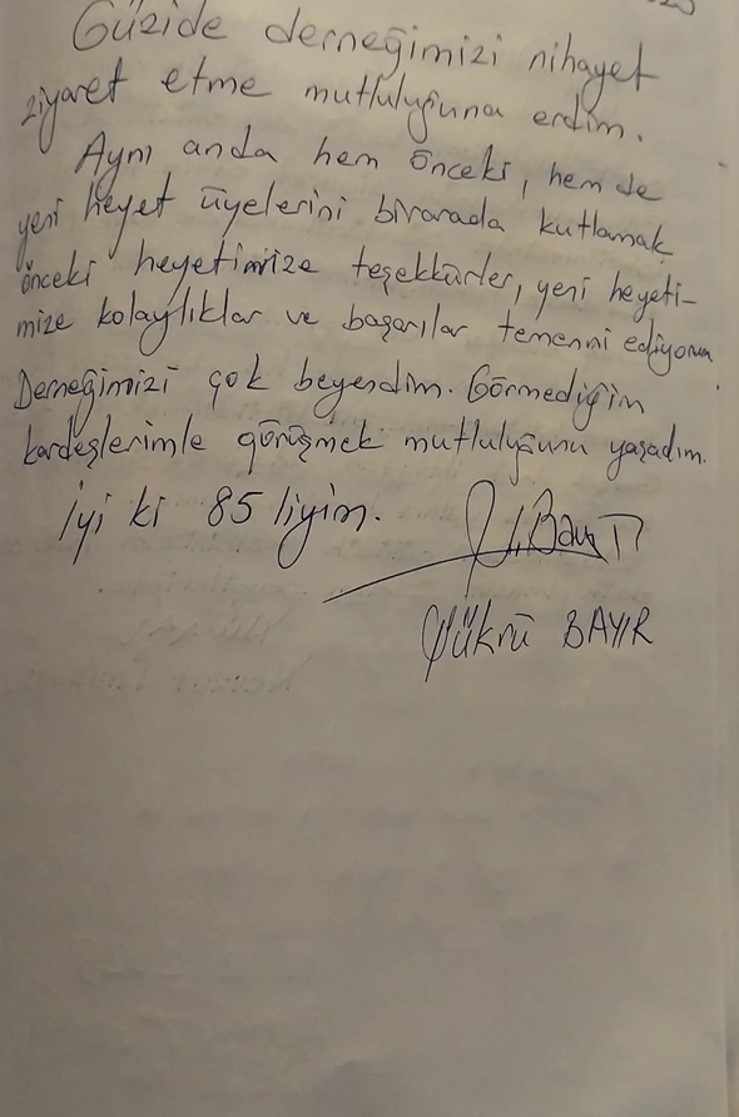 Güzide derneğimizi nihayet
ziyaret etme mutluluğuna erdim.
Aynı anda hem önceki, hem de
yeni heyet üyelerini birarada kutlamak
önceki heyetimize teşekkürler, yeni heyeti-
mize kolaylıklar ve başarılar temenni ediyorum
Derneğimizi çok beyendim. Görmediğim
kardeşlerimle görüşmek mutluluğunu yaşadım.
İyi ki 85 liyim.
Şükrü BAYIR